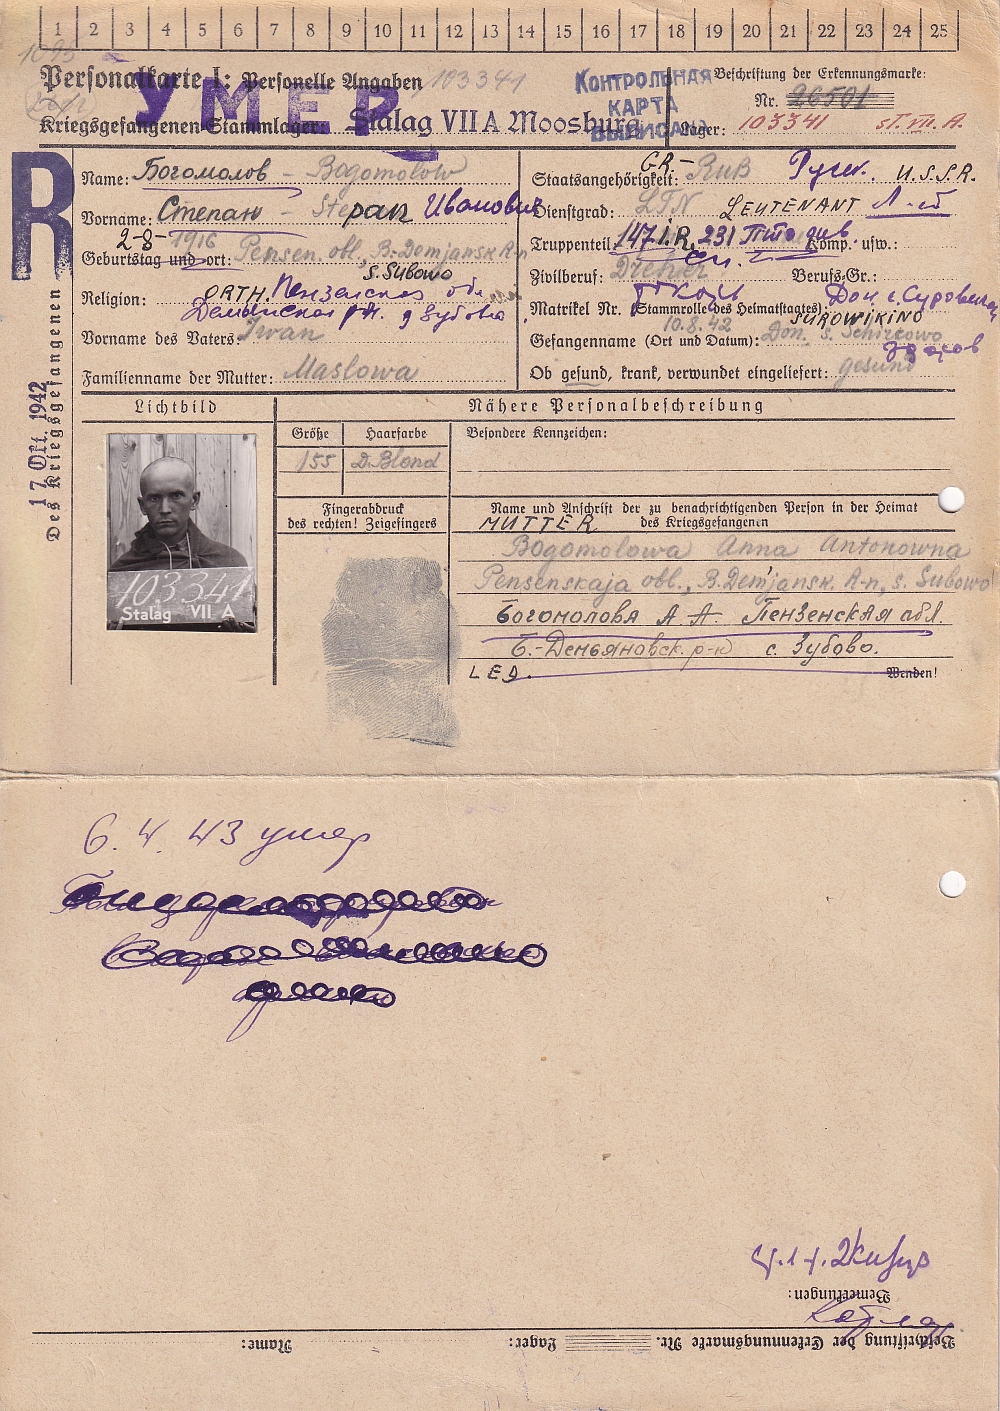 1 2 3 4 5 6 7 8 9 10 11 12 13 14 15 16 17 18 19 20 21 22 23 24 25
Personalkarte I: Personelle Angaben 103341
УМЕР
КОНТРОЛЬНАЯ КАРТА ВЫПИСАНА
Beschriftung der Erkennungsmarke:
Nr. 26501
Kriegsgefangenen-Stammlager: Stalag VII A Moosburg
Lager: 103341 ST. VII. A.
R
Name: Богомолов - Bogomolow
Staatsangehörigkeit: GR- Ruß Русск. U.S.S.R.
Vorname: Степан - Stepan Иванович
Dienstgrad: LTN LEUTENANT Л-т
2-8- 1916
Geburtstag und -ort: Pensen. obl., B. Demjansk R-n
s. Subowo
Truppenteil: 147 I.R. 231 див. Komp. usw.:
Zivilberuf: Dreher Berufs-Gr.:
Religion: ORTH. Пензенская обл.
Демьянская р-н. д Зубово
Matrikel Nr. (Stammrolle des Heimatstaates): Дон с. Суровикин
SUROWIKINO
Vorname des Vaters: Iwan
10.8.42
Gefangenname (Ort und Datum): Don. s. Schirkowo
здоров
Familienname der Mutter: Maslowa
Ob gesund, krank, verwundet eingeliefert: gesund
17. Okt. 1942
Des Kriegsgefangenen
Lichtbild
Nähere Personalbeschreibung
Größe Haarfarbe Besondere Kennzeichen:
155 D. Blond
103341
Stalag VII A
Fingerabdruck
des rechten! Zeigefingers
Name und Anschrift der zu benachrichtigenden Person in der Heimat
des Kriegsgefangenen
MUTTER
Bogomolowa Anna Antonowna
Pensenskaja obl., B. Demjansk. R-n, s. Subowo
Богомолова А А. Пензенская обл.
Б.-Демьяновск. р-н с. Зубово.
LED.
Wenden!
6. 4. 43 умер
Bemerkungen:
Beschriftung der Erkennungsmarke Nr. Lager: Name: